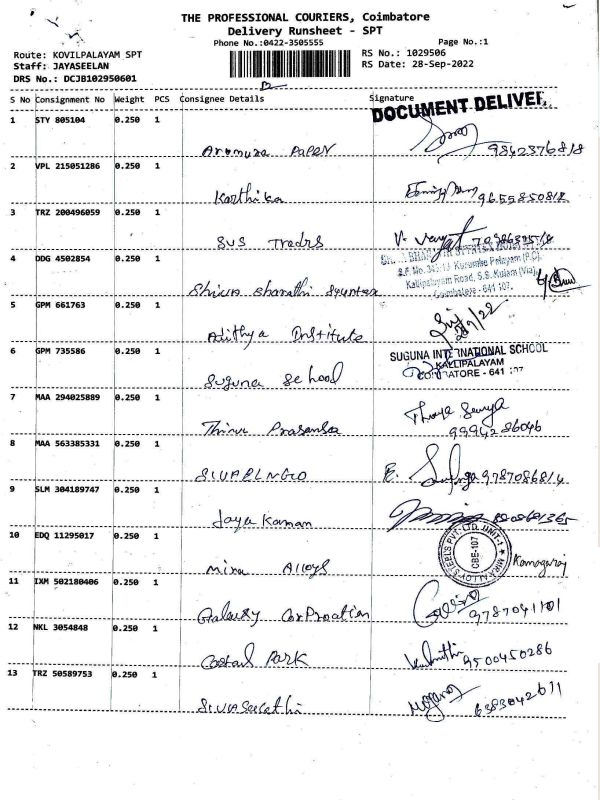 THE PROFESSIONAL COURIERS, Coimbatore
Delivery Runsheet - SPT
Phone No.:0422-3505555
Page No.:1
Route: KOVILPALAYAM_SPT
RS No.: 1029506
Staff: JAYASEELAN
RS Date: 28-Sep-2022
DRS No.: DCJB102950601
S No Consignment No Weight PCS Consignee Details Signature
DOCUMENT DELIVER
1 STY 805104 0.250 1
PAPEN 9842376818
2 VPL 215051286 0.250 1
Karthika
3 TRZ 200496059 0.250 1
SUS Tradrs
4 DDG 4502854 0.250 1
S.F. No. Kurumba Palayam (P.O),
Kallipalayam Road, S.S. Kulam (Via),
Coimbatore - 641 107.
Shiva bharathi
5 GPM 661763 0.250 1
Adithya Institute
6 GPM 735586 0.250 1
SUGUNA INTERNATIONAL SCHOOL
KALLIPALAYAM
COIMBATORE - 641 107
Suguna School
7 MAA 294025889 0.250 1
Prasansa
9994286046
8 MAA 563385331 0.250 1
9787086814
9 SLM 304189747 0.250 1
Jaya Kannan
10 EDQ 11295017 0.250 1
CBE-107
Mira Alloys Kanagaraj
11 IXM 502180406 0.250 1
Galaxy CorProation 9787041101
12 NKL 3054848 0.250 1
Park 9500450286
13 TRZ 50589753 0.250 1
6383042611